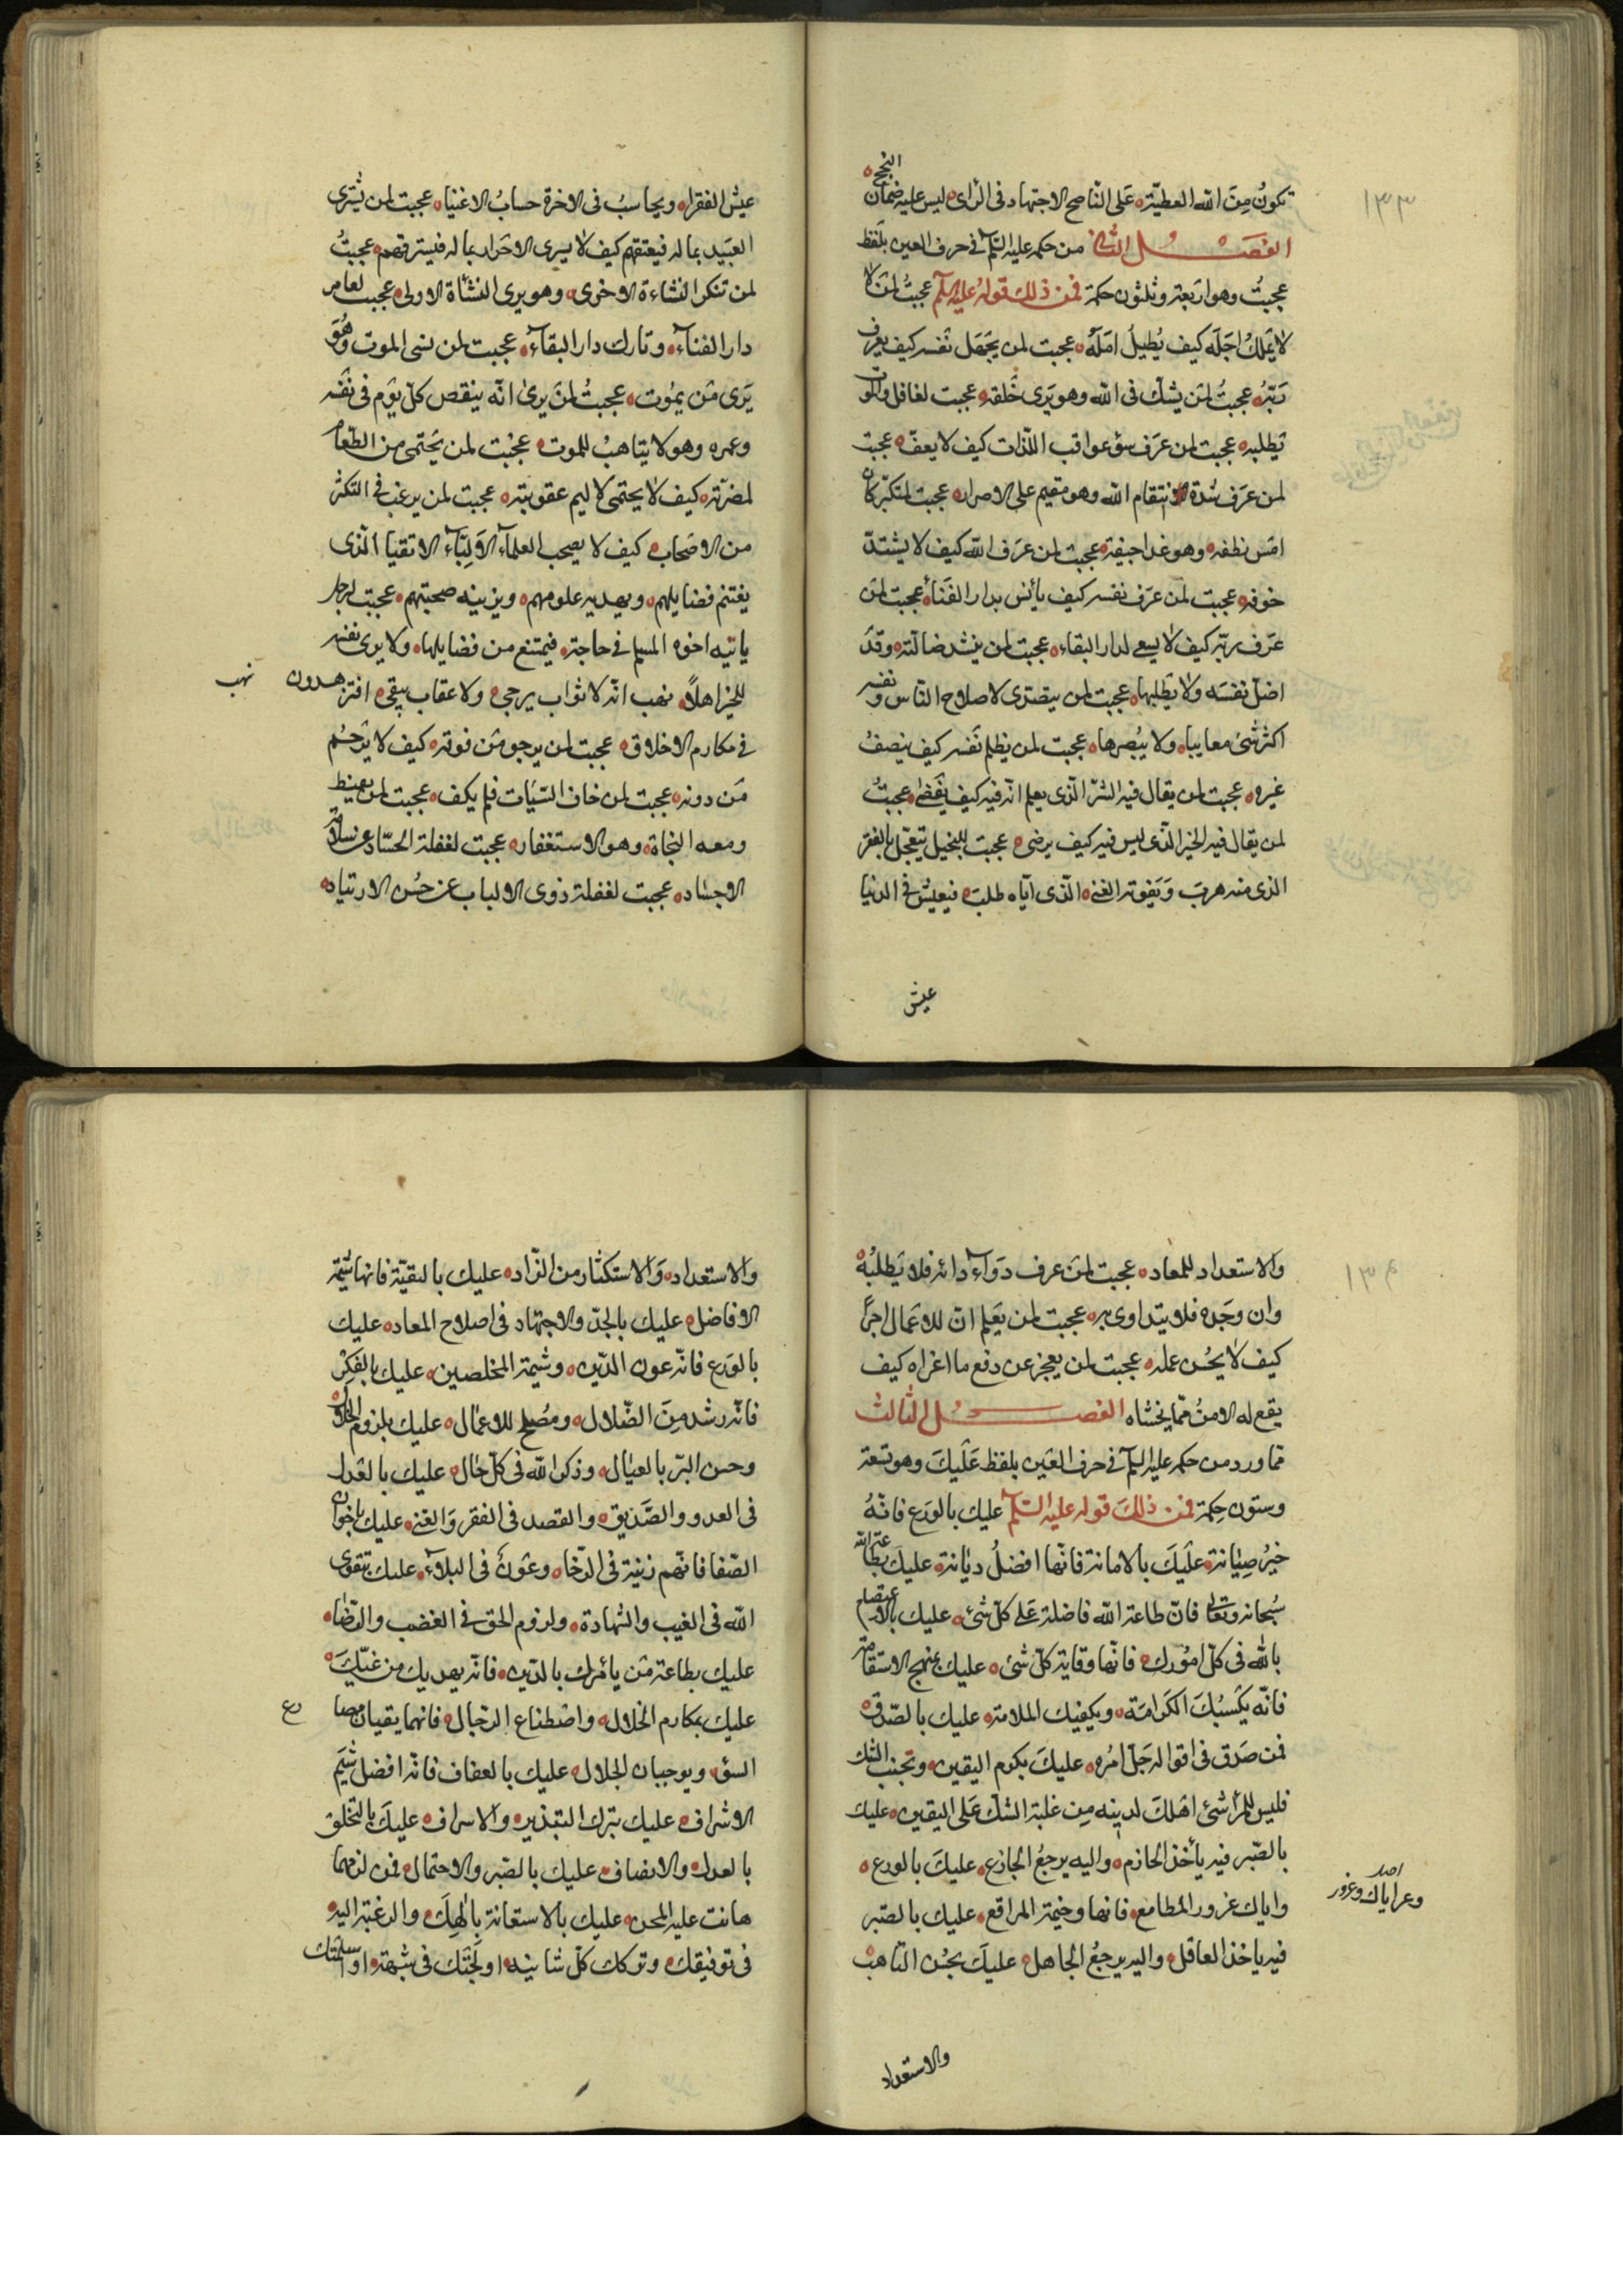 ١٣٣
النجح
تكونُ مِنَ الله العطيّة عَلى النّاصح الاجتهاد فى الرأى ليس عليه ضمان
الفصــل الثانى من حكمه عليه السّلم فى حرف العين بلفظ
عجبتُ وهو اربعة وثلثون حكمة فمن ذلك قوله عليه السّلم عجبتُ لمن لا
لا يَملكُ اجَلَه كيف يُطيلُ امَلَه عجبت لمن يَجهَل نفسه كيف يعرف
رَبّهُ عجبتُ لمَن يشكّ فى الله وهو يَرى خَلقه عجبت لغافل والموت
يَطلبه عجبت لمن عرَف سؤ عواقب اللذات كيف لا يعفّ عجبت
لمن عرَف شدة انتقام الله وهو مقيم على الاصرار عجبت لمتكبّر كان
امَسِ نطفه وهو غدا جيفة عجبت لمن عرَف الله كيف لا يشتدّ
خوفه عجبت لمن عرَف نفسه كيف يأنس بدار الفَناءِ عجبت لمَن
عرَف ربّه كيف لا يسعى لدار البقاء عجبت لمن ينشد ضالّته وقَد
اضلّ نفسَه ولا يَطلبها عجبت لمن يتصدّى لاصلاح النّاس ونفسه
اكثر شئ معايبا ولا يبُصرها عجبت لمن يظلم نَفسه كيف ينصفُ
غيره عجبت لمن يقال فيه الشرّ الّذى يعلم انّه فيه كيف يَغضب عجبتُ
لمن يقال فيه الخير الّذى ليس فيه كيف يرضى عجبت للبخيل يتعجّل بالفقر
الذى منه هربَ وَيَفوته الغنى الّذى ايّاه طلبَ فيعيش فى الدنيا
عيش
عيش الفقرا ويحاسبُ فى الاخرة حسابُ الاغنيا عجبت لمن يشترى
العَبيد بماله فيعتقهم كيف لا يشرى الاحَرار بماله فيسترقهم عجبتُ
لمن تنكر النشاءة الاخرى وهو يرى النشأة الاولى عجبت لعامر
دار الفناءِ وتارك دار البقاءِ عجبت لمن نسى الموت وهُوَ
يَرى مَن يمُوت عجبتُ لمَن يَرىٰ انّه ينقص كلّ يوَم فى نفسه
وعمره وهو لا يتاهبُ للموت عجبْت لمن يَحتمى من الطّعام
لمضرّته كيف لا يحتمى لاليم عقوبته عجبت لمن يرغب فى التكثر
من الاصَحاب كيف لا يصحب العلماءَ الاَولِبّاءَ الاتقيا الّذى
يغتنم فضايلهم ويهديه علومهم ويزينه صحبتهم عجبت لرجل
ياتيه اخوه المسلم فى حاجة فيمتنع من فضايلها ولا يرى نفسه
للخير اهلاً نهب انّه لا ثواب يرجى ولا عقاب يتقى افتزهدون
نهب
فى مكارم الاخلاق عجبت لمن يرجو مَن فوقه كيف لا يَرحَمُ
مَن دونه عجبت لمن خاف السّيّات فلم يكف عجبت لمن يقنط
ومعه النجاة وهو الاستغفار عجبت لغفلة الحسّاد عن سلامة
الاجسٰاد عجبت لغفلة ذوى الالباب عن حُسن الارتياد
١٣٤
والاستعداد للمعاد عجبت لمَن عرف دَوَاءَ دائه فلا يَطلبُهُ
وان وجَده فلا يتداوى به عجبت لمن يَعلم انّ للاعَمال اجراً
كيف لا يحُسن عمله عجبت لمن يعجز عن دفع ما اغراه كيف
يقع له الامنُ ممّا يخشاه الفصــل الثالث
ممّا ورد من حكمه عليه السلم فى حرف العَين بلفظ عَلَيكَ وهو تسعة
وستون حِكمة فمن ذلِكَ قوله عليه السّلم عليك بالوَرع فانّهُ
خيرُ صِيٰانة علَيكَ بالامانة فانّها افضلُ ديٰانة عليكَ بطاعة الله
سُبحانه وتعالى فانّ طاعة الله فاضلة عَلى كلّ شئ عليك بالاعتصام
بالله فى كلّ امُورك فانّها وقاية كلّ شئ عليك بمنهج الاستقامة
فانّه يكَسبُكَ الكَرامَة ويكفيك الملامة عليك بالصّدق
فمن صَدَق فى اقواله جَلّ امْره عليكَ بكرم اليقين وتجنب الشك
فليس للمرأ شئ اهَلكَ لدينه مِن غلبة الشكّ عَلى اليقين عليك
بالصّبر فبه يأخذ الحازم واليه يرجعُ الجازع عليكَ بالورع
واياك غرور المطامع فانها وخيمة المراتع عليك بالصّبر
فبه ياخذ العاقل واليه يرجعُ الجاهل عليكَ بحُسن التاهب
والاستعداد
والاستعداد وَالاستكثار من الزّاد عليك بالتقيّة فانها شيمة
الافاضل عليك بالجدّ والاجتهاد فى اصلاح المعاد عليك
بالوَرع فانّه عون الدّين وشيمة المخلصين عليك بالفكِر
فانّه رشد مِنَ الضّلال ومصُلح للاعمٰال عليك بلزوم الحلال
وحسن البرّ بالعيٰال وذكر الله فى كلّ حٰال عليك بالعدل
فى العدو والصَّديق والقصد فى الفقر وَالغنى عليك باخوان
الصّفا فانّهم زينة فى الرّخاء وعَونٌ فى البلاءِ عليك بتقوى
الله فى الغيب والشهادة ولزوم الحق فى الغضب والرّضاء
عليك بطاعة مَن يأمرك بالدّين فانّه يهديك من غيّك
عليك بمكارم الخلال واصْطناع الرّجال فانهما يقيان مصا
رع
السوَّ ويوجبان الجلال عليك بالعفاف فانّه افضل شيَم
الاشراف عليك بترك التبذير والاسراف عليكَ بالتخلق
بالعدل والانصاف عليك بالصّبر والاحتمال فمن لزمهما
هانت عليه المحن عليك بالاستعانة بالٰهِكَ والرغبة اليه
فى توفيقك وتركك كلّ شاينه اولَجتَك فى شبهة او اسلمتك